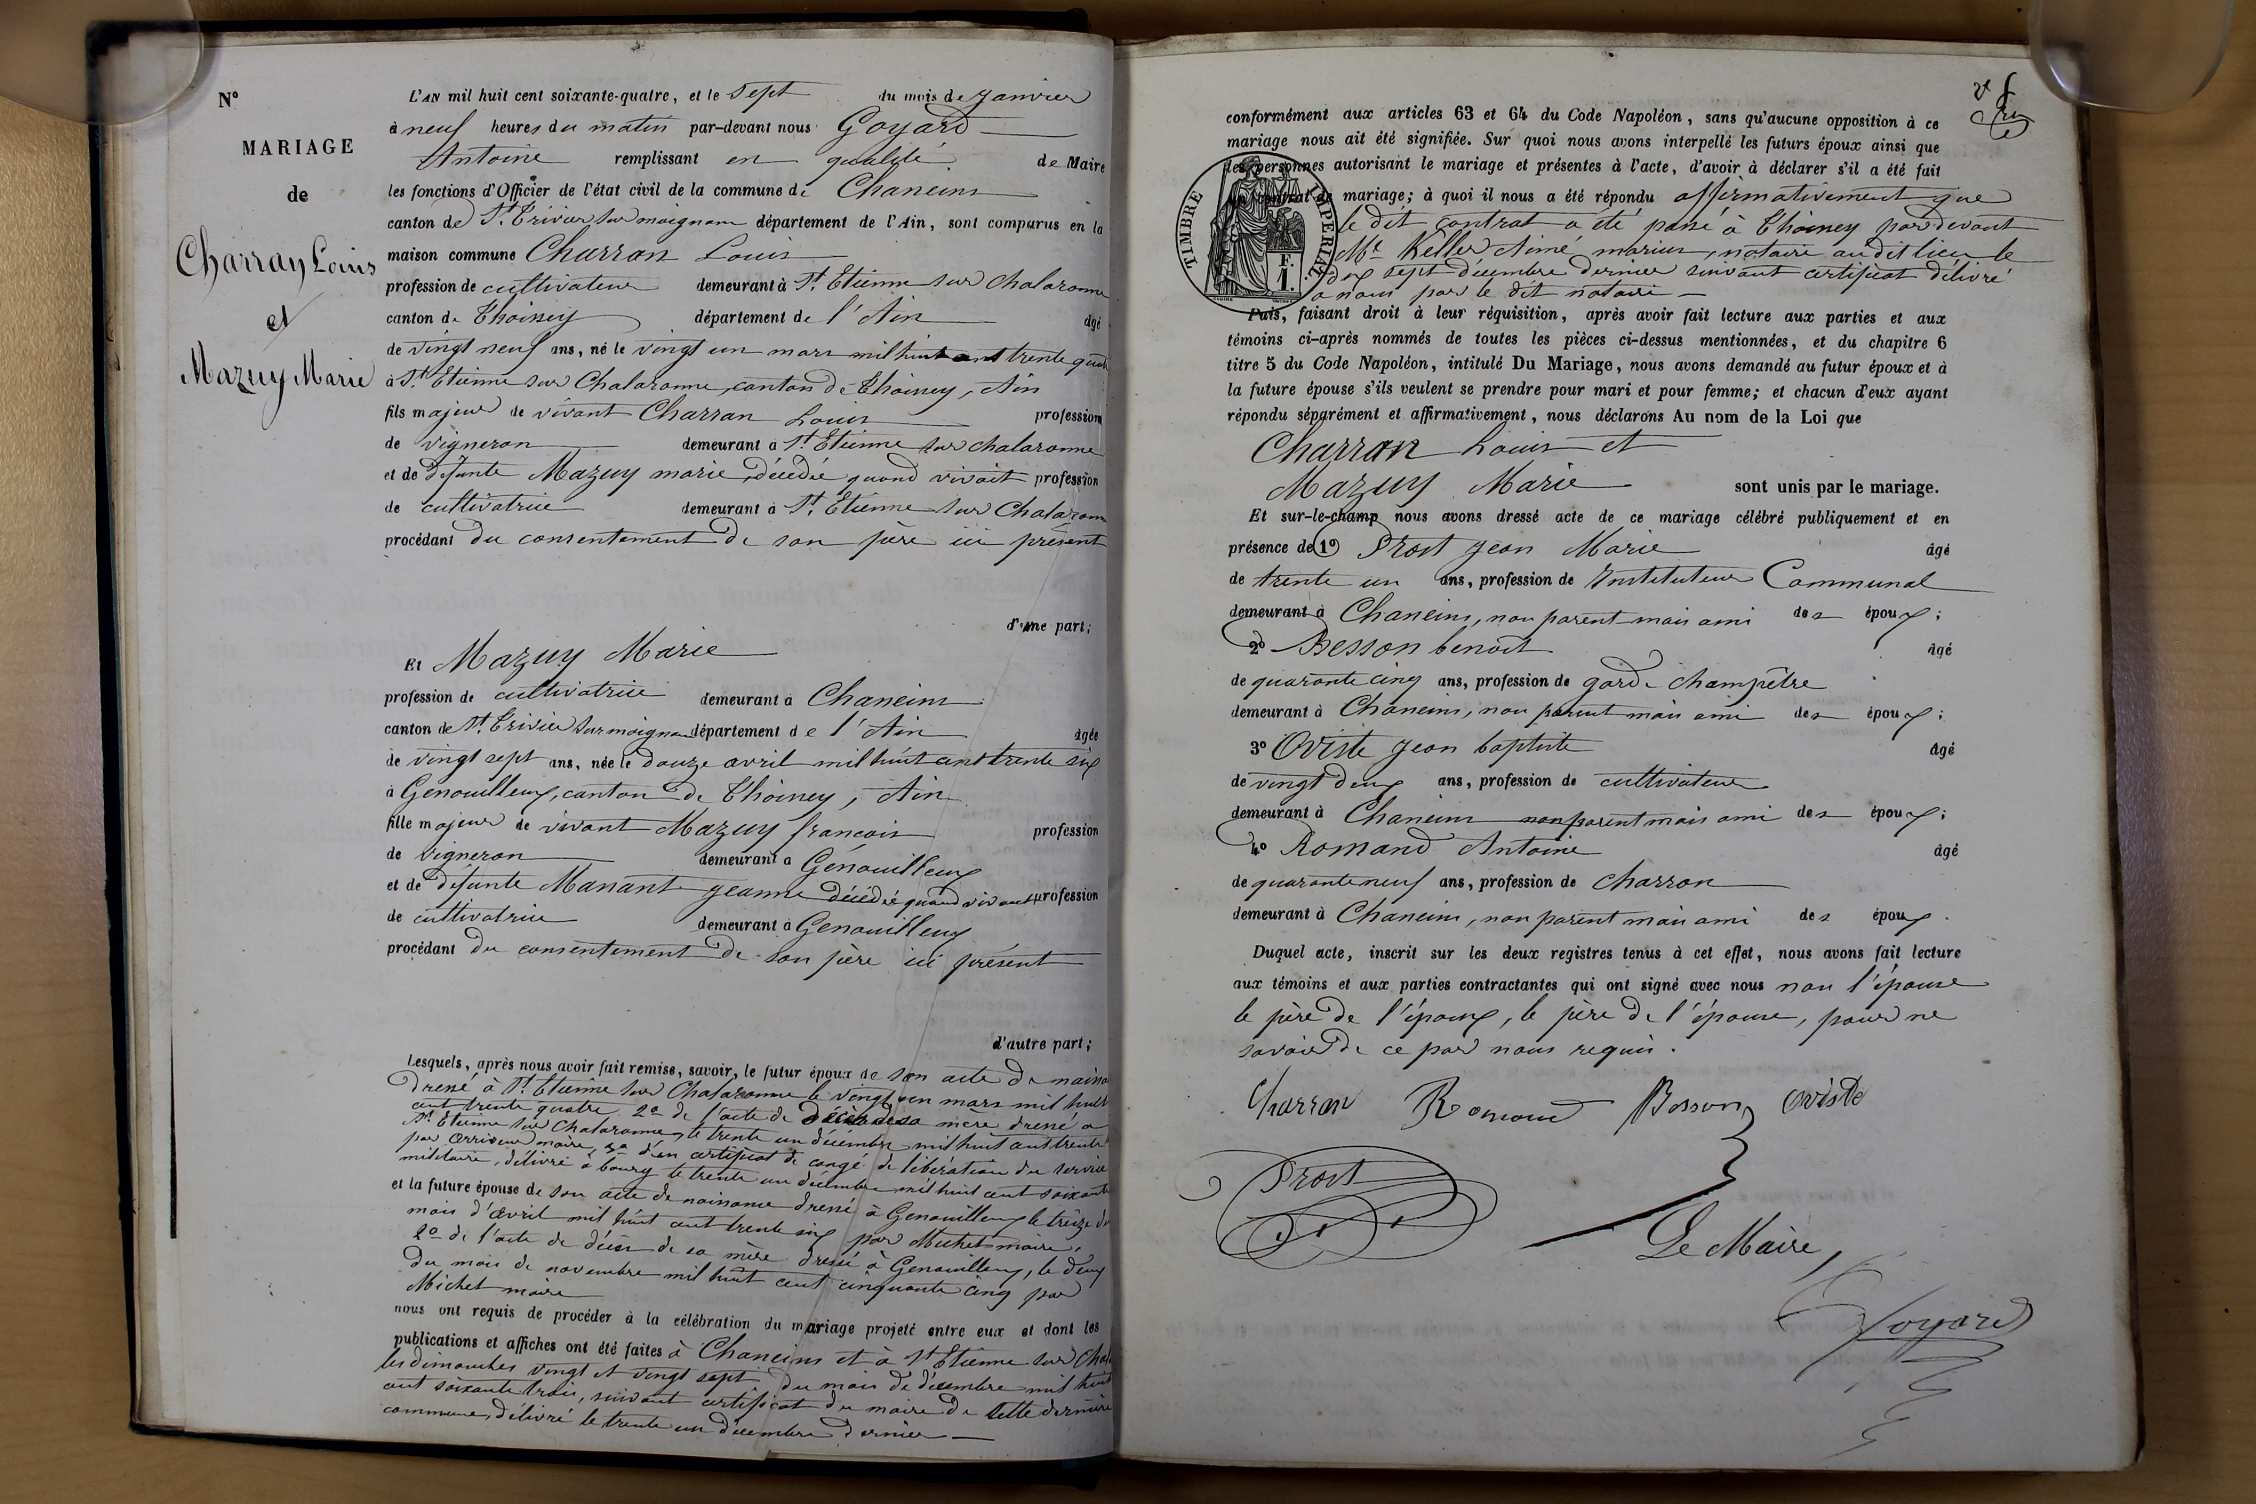 N°
MARIAGE
de
Charran Louis
et
Mazuy Marie
L'AN mil huit cent soixante-quatre, et le Sept du mois de Janvier
à neuf heures du matin par-devant nous Goyard
Antoine remplissant en qualité de Maire
les fonctions d'Officier de l'état civil de la commune de Chaneins
canton de St Trivier sur moignans département de l'Ain, sont comparus en la
maison commune Charran Louis
profession de cultivateur demeurant à St Etienne sur Chalaronne
canton de Thoissey département de l'Ain âgé
de vingt neuf ans, né le vingt un mars mil huit cent trente quatre
à St Etienne sur Chalaronne, canton de Thoissey, Ain
fils majeur de vivant Charran Louis profession
de vigneron demeurant à St Etienne sur Chalaronne
et de défunte Mazuy marie, décédée quand vivait profession
de cultivatrice demeurant à St Etienne sur Chalaronne
procédant du consentement de son père ici présent
d'une part;
Et Mazuy Marie
profession de cultivatrice demeurant à Chaneins
canton de St Trivier sur moignans département de l'Ain âgée
de vingt sept ans, née le douze avril mil huit cent trente six
à Genouilleux, canton de Thoissey, Ain
fille majeur de vivant Mazuy francois profession
de vigneron demeurant à Genouilleux
et de défunte Manant Jeanne décédée quand vivait profession
de cultivatrice demeurant à Genouilleux
procédant du consentement de son père ici présent
d'autre part;
Lesquels, après nous avoir fait remise, savoir, le futur époux de son acte de naissance
dressé à St Etienne sur Chalaronne le vingt un mars mil huit
cent trente quatre 2° de l'acte de décès de sa mère dressé à
St Etienne sur Chalaronne, le trente un décembre mil huit cent trente
par maire, 3° d'un certificat de congé de libération du service
militaire, délivré à bourg le trente un décembre mil huit cent soixante
et la future épouse de son acte de naissance dressé à Genouilleux le treize du
mois d'avril mil huit cent trente six par Michet maire,
2° de l'acte de décès de sa mère dressé à Genouilleux, le deux
du mois de novembre mil huit cent cinquante cinq par
Michet maire
nous ont requis de procéder à la célébration du mariage projeté entre eux et dont les
publications et affiches ont été faites à Chaneins et à St Etienne sur Chal
les dimanches vingt et vingt sept du mois de décembre mil huit
cent soixante trois, suivant certificat du maire de cette dernière
commune, délivré le trente un décembre dernier
conformément aux articles 63 et 64 du Code Napoléon, sans qu'aucune opposition à ce
mariage nous ait été signifiée. Sur quoi nous avons interpellé les futurs époux ainsi que
les personnes autorisant le mariage et présentes à l'acte, d'avoir à déclarer s'il a été fait
un contrat de mariage; à quoi il nous a été répondu affirmativement que
le dit contrat a été passé à Thoissey par devant
Me Keller Aimé marius, notaire audit lieu le
dix sept décembre dernier suivant certificat délivré
a nous par le dit notaire
TIMBRE IMPERIAL
F.
1.
Puis, faisant droit à leur réquisition, après avoir fait lecture aux parties et aux
témoins ci-après nommés de toutes les pièces ci-dessus mentionnées, et du chapitre 6
titre 5 du Code Napoléon, intitulé Du Mariage, nous avons demandé au futur époux et à
la future épouse s'ils veulent se prendre pour mari et pour femme; et chacun d'eux ayant
répondu séparément et affirmativement, nous déclarons Au nom de la Loi que
Charran Louis et
Mazuy Marie sont unis par le mariage.
Et sur-le-champ nous avons dressé acte de ce mariage célébré publiquement et en
présence de 1° Prost Jean Marie âgé
de trente un ans, profession de Instituteur Communal
demeurant à Chaneins, non parent mais ami des époux;
2° Besson benoit âgé
de quarante cinq ans, profession de garde champêtre
demeurant à Chaneins, non parent mais ami des époux;
3° Oviste Jean baptiste âgé
de vingt deux ans, profession de cultivateur
demeurant à Chaneins non parent mais ami des époux;
4° Romand Antoine âgé
de quarante neuf ans, profession de charron
demeurant à Chaneins, non parent mais ami des époux.
Duquel acte, inscrit sur les deux registres tenus à cet effet, nous avons fait lecture
aux témoins et aux parties contractantes qui ont signé avec nous non l'épouse
le père de l'époux, le père de l'épouse, pour ne
savoir de ce par nous requis.
Charran Romand Besson Oviste
Prost
Le Maire,
Goyard